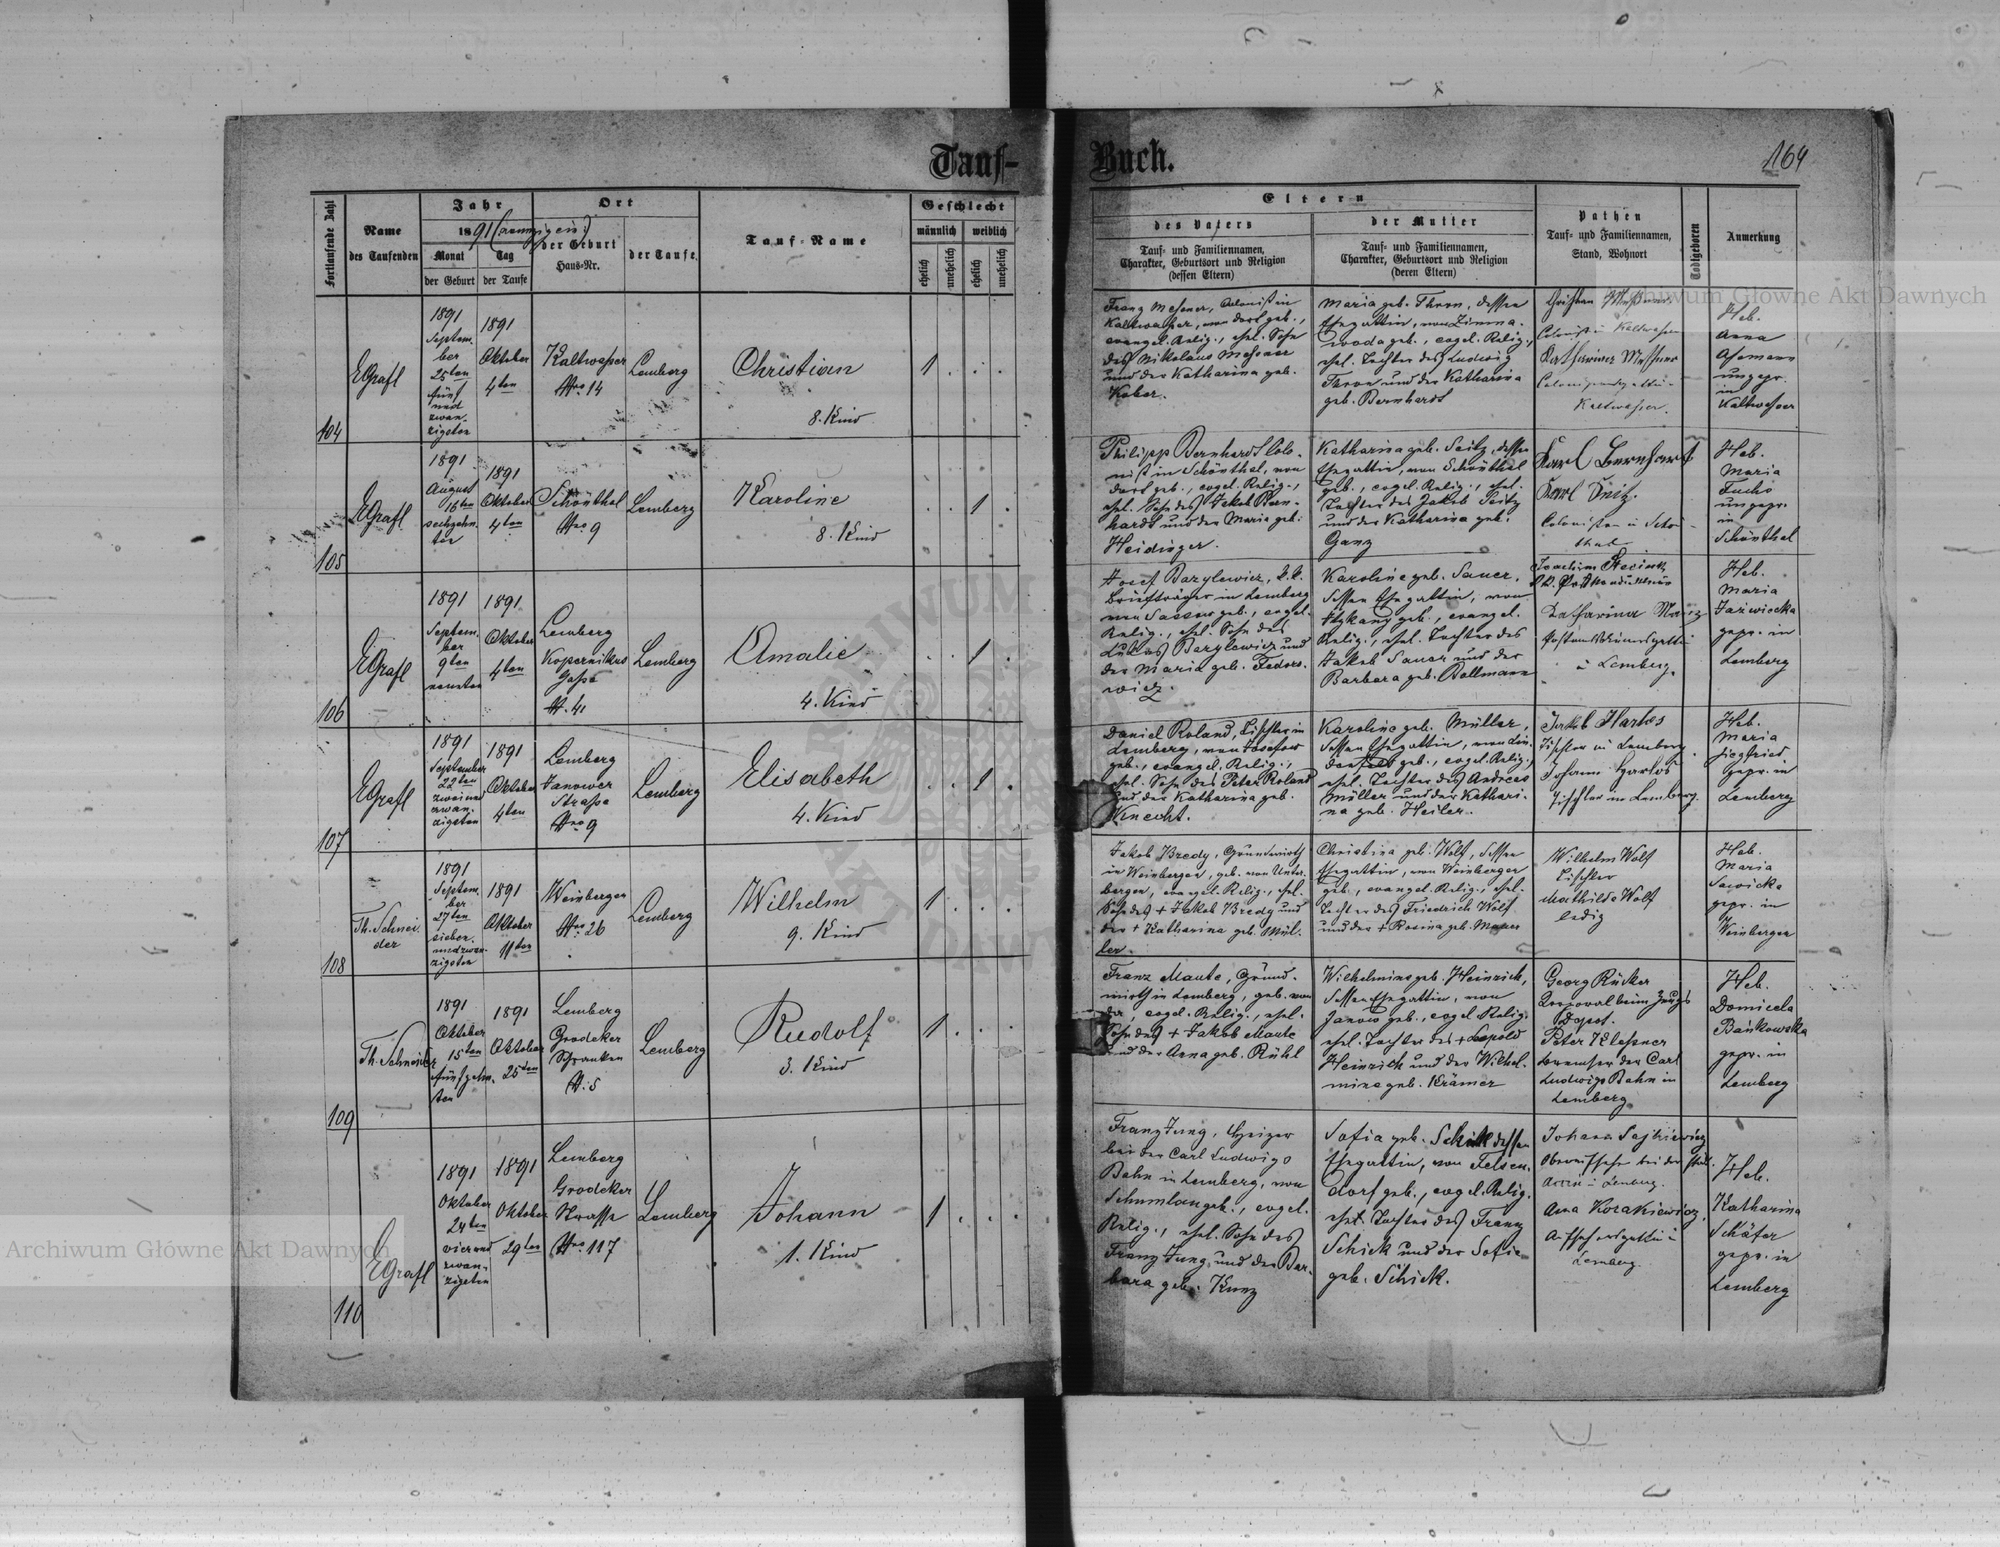 Tauf-
Buch.
164
Fortlaufende Zahl
Name
des Taufenden
Jahr
1891 (
Monat
Tag
der Geburt
der Taufe
Ort
der Geburt
Haus-Nr.
der Taufe
Tauf-Name
Geschlecht
männlich
weiblich
ehelich
unehelich
ehelich
unehelich
Eltern
des Vaters
Tauf- und Familiennamen,
Charakter, Geburtsort und Religion
(dessen Eltern)
der Mutter
Tauf- und Familiennamen,
Charakter, Geburtsort und Religion
(deren Eltern)
Pathen
Tauf- und Familiennamen,
Stand, Wohnort
Todtgeboren
Anmerkung
104
EGrafl
1891
Septem-
ber
25ten
fünf
und
zwan-
zigsten
1891
Oktober
4ten
Kaltwasser
Nro 14
Lemberg
Christian
8. Kind
1 . . .
Franz Messner, Colonist in
Kaltwasser, von dort geb.,
evangel. Relig., ehel. Sohn
des Nikolaus Messner
und der Katharina geb.
Kober.
Maria geb. Thron, dessen
Ehegattin, von Zimna-
woda geb., evgel. Relig.,
ehel. Tochter des Ludwig
Thron und der Katharina
geb. Bernhardt
Christian Messner
Colonist in Kaltwasser
Katharina Messner
Kaltwasser.
Heb.
Anna
ungepr.
in
Kaltwasser
105
EGrafl
1891
August
16ten
sechzehn-
ten
1891
Oktober
4ten
Schönthal
Nro 9
Lemberg
Karoline
8. Kind
. . 1 .
Philipp Bernhardt Colo-
nist in Schönthal, von
dort geb., evgel. Relig.,
ehel. Sohn des Jakob Bern-
hardt und der Maria geb.
Heidinger.
Katharina geb. Seitz, dessen
Ehegattin, von Schönthal
geb., evgel. Relig., ehel.
Tochter des Jakob Seitz
und der Katharina geb.
Ganz
Karl Bernhart
Karl Seitz.
Colonisten in Schön-
thal
Heb.
Maria
Fuchs
ungepr.
in
Schönthal
106
EGrafl
1891
Septem-
ber
9ten
neunten
1891
Oktober
4ten
Lemberg
Kopernikus
Gasse
N. 41
Lemberg
Amalie
4. Kind
. . 1 .
Josef Bazylewicz, k.k.
Briefträger in Lemberg
von Sassow geb., evgel.
Relig., ehel. Sohn des
Lukas Bazylewicz und
der Maria geb. Fedoro-
wicz.
Karoline geb. Sauer,
dessen Ehegattin, von
geb., evangel.
Relig., ehel. Tochter des
Jakob Sauer und der
Barbara geb. Bollmann
Joachim
Katharina
in Lemberg.
Heb.
Maria
gepr. in
Lemberg
107
EGrafl
1891
September
22ten
zweiund
zwan-
zigsten
1891
Oktober
4ten
Lemberg
Janower
Strasse
Nro 9
Lemberg
Elisabeth
4. Kind
. . 1 .
Daniel Roland, Tischler in
Lemberg, von Josefow
geb., evangel. Relig.,
ehel. Sohn des Peter Roland
und der Katharina geb.
Knecht.
Karoline geb. Müller,
dessen Ehegattin, von Lin-
denfeld geb., evgel. Relig.,
ehel. Tochter des Andreas
Müller und der Kathari-
na geb. Heiler.
Jakob Harlos
Tischler in Lemberg
Johann Harlos
Tischler in Lemberg.
Heb.
Maria
Siegfried
gepr. in
Lemberg
108
Th. Schnei-
der
1891
Septem-
ber
27ten
sieben-
undzwan-
zigsten
1891
Oktober
11ten
Weinbergen
Nro 26
Lemberg
Wilhelm
9. Kind
1 . . .
Jakob Bredy, Grundwirth
in Weinbergen, geb. von Unter-
bergen, evangel. Relig., ehel.
Sohn des + Jakob Bredy und
der + Katharina geb. Mül-
ler.
Christina geb. Wolf, dessen
Ehegattin, von Weinbergen
geb., evangel. Relig., ehel.
Tochter des Friedrich Wolf
und der + Rosina geb. Mauer
Wilhelm Wolf
Tischler
Mathilde Wolf
ledig
Heb.
Maria
Sawicka
gepr. in
Weinbergen
109
Th. Schneider
1891
Oktober
15ten
fünfzehn-
ten
1891
Oktober
25ten
Lemberg
Grodeker
Schranken
N. 5
Lemberg
Rudolf
3. Kind
1 . . .
Franz Maute, Grund-
wirth in Lemberg, geb. von
da, evgel. Relig., ehel.
Sohn des + Jakob Maute
und der Anna geb. Rühl
Wilhelmine geb. Heinrich,
dessen Ehegattin, von
Janow geb., evgel. Relig.
ehel. Tochter des + Leopold
Heinrich und der Wilhel-
mine geb. Krämer
Georg Rücker
Corporal beim Zeugs
Depot.
Peter Klessner
Bremser der Carl
Ludwigs Bahn in
Lemberg
Heb.
Domicela
Bańkowska
gepr. in
Lemberg
110
EGrafl
1891
Oktober
24ten
vierund
zwan-
zigsten
1891
Oktober
29ten
Lemberg
Grodeker
Strasse
Nro 117
Lemberg
Johann
1. Kind
1 . . .
Franz Jung, Heizer
bei der Carl Ludwigs
Bahn in Lemberg, von
Schumlau geb., evgel.
Relig., ehel. Sohn des
Franz Jung und der Bar-
bara geb. Kunz
Sofia geb. Schick dessen
Ehegattin, von Felsen-
dorf geb., evgel. Relig.
ehel. Tochter des Franz
Schick und der Sofie
geb. Schick.
Johann
in Lemberg.
Anna Korakiewicz,
Aufsehersgattin in
Lemberg.
Heb.
Katharina
Schäfer
gepr. in
Lemberg
Archiwum Główne Akt Dawnych
Archiwum Główne Akt Dawnych